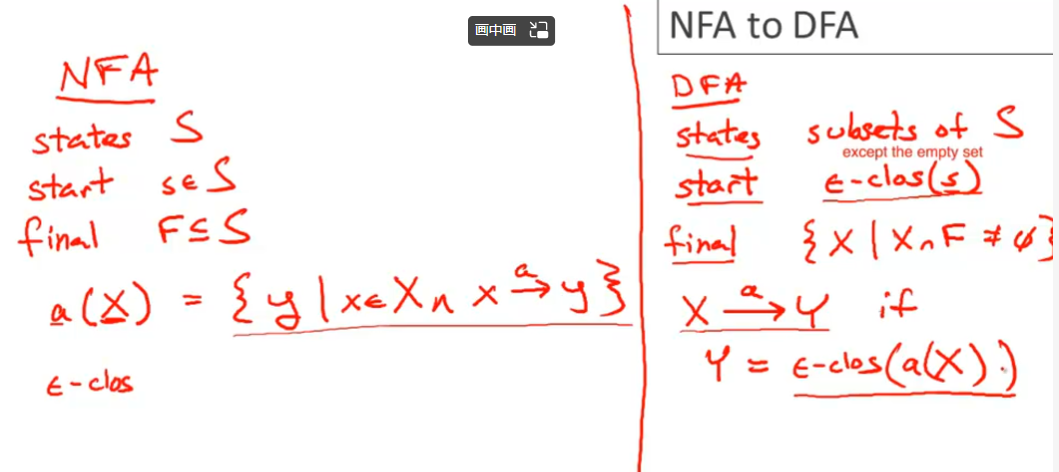 画中画
NFA
states S
start s∈S
final F⊆S
a(X) = {y | x∈X ∩ x →a y}
ϵ-clos
NFA to DFA
DFA
states subsets of S
except the empty set
start ϵ-clos(s)
final {X | X∩F ≠ ϕ}
X →a Y if
Y = ϵ-clos(a(X))